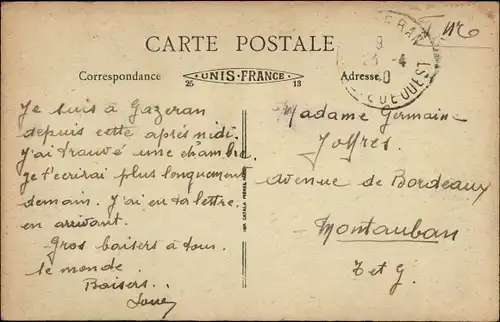 CARTE POSTALE
Correspondance
UNIS-FRANCE
25 13
Adresse
Je suis à Gazeran
depuis cette après midi.
J'ai trouvé une chambre.
Je t'ecrirai plus longuement
demain. J'ai eu ta lettre.
en arrivant.
Gros baisers à tous.
le monde.
Baisers..
Madame Germaine
Joffres.
Avenue de Bordeaux
Montauban
T et G.